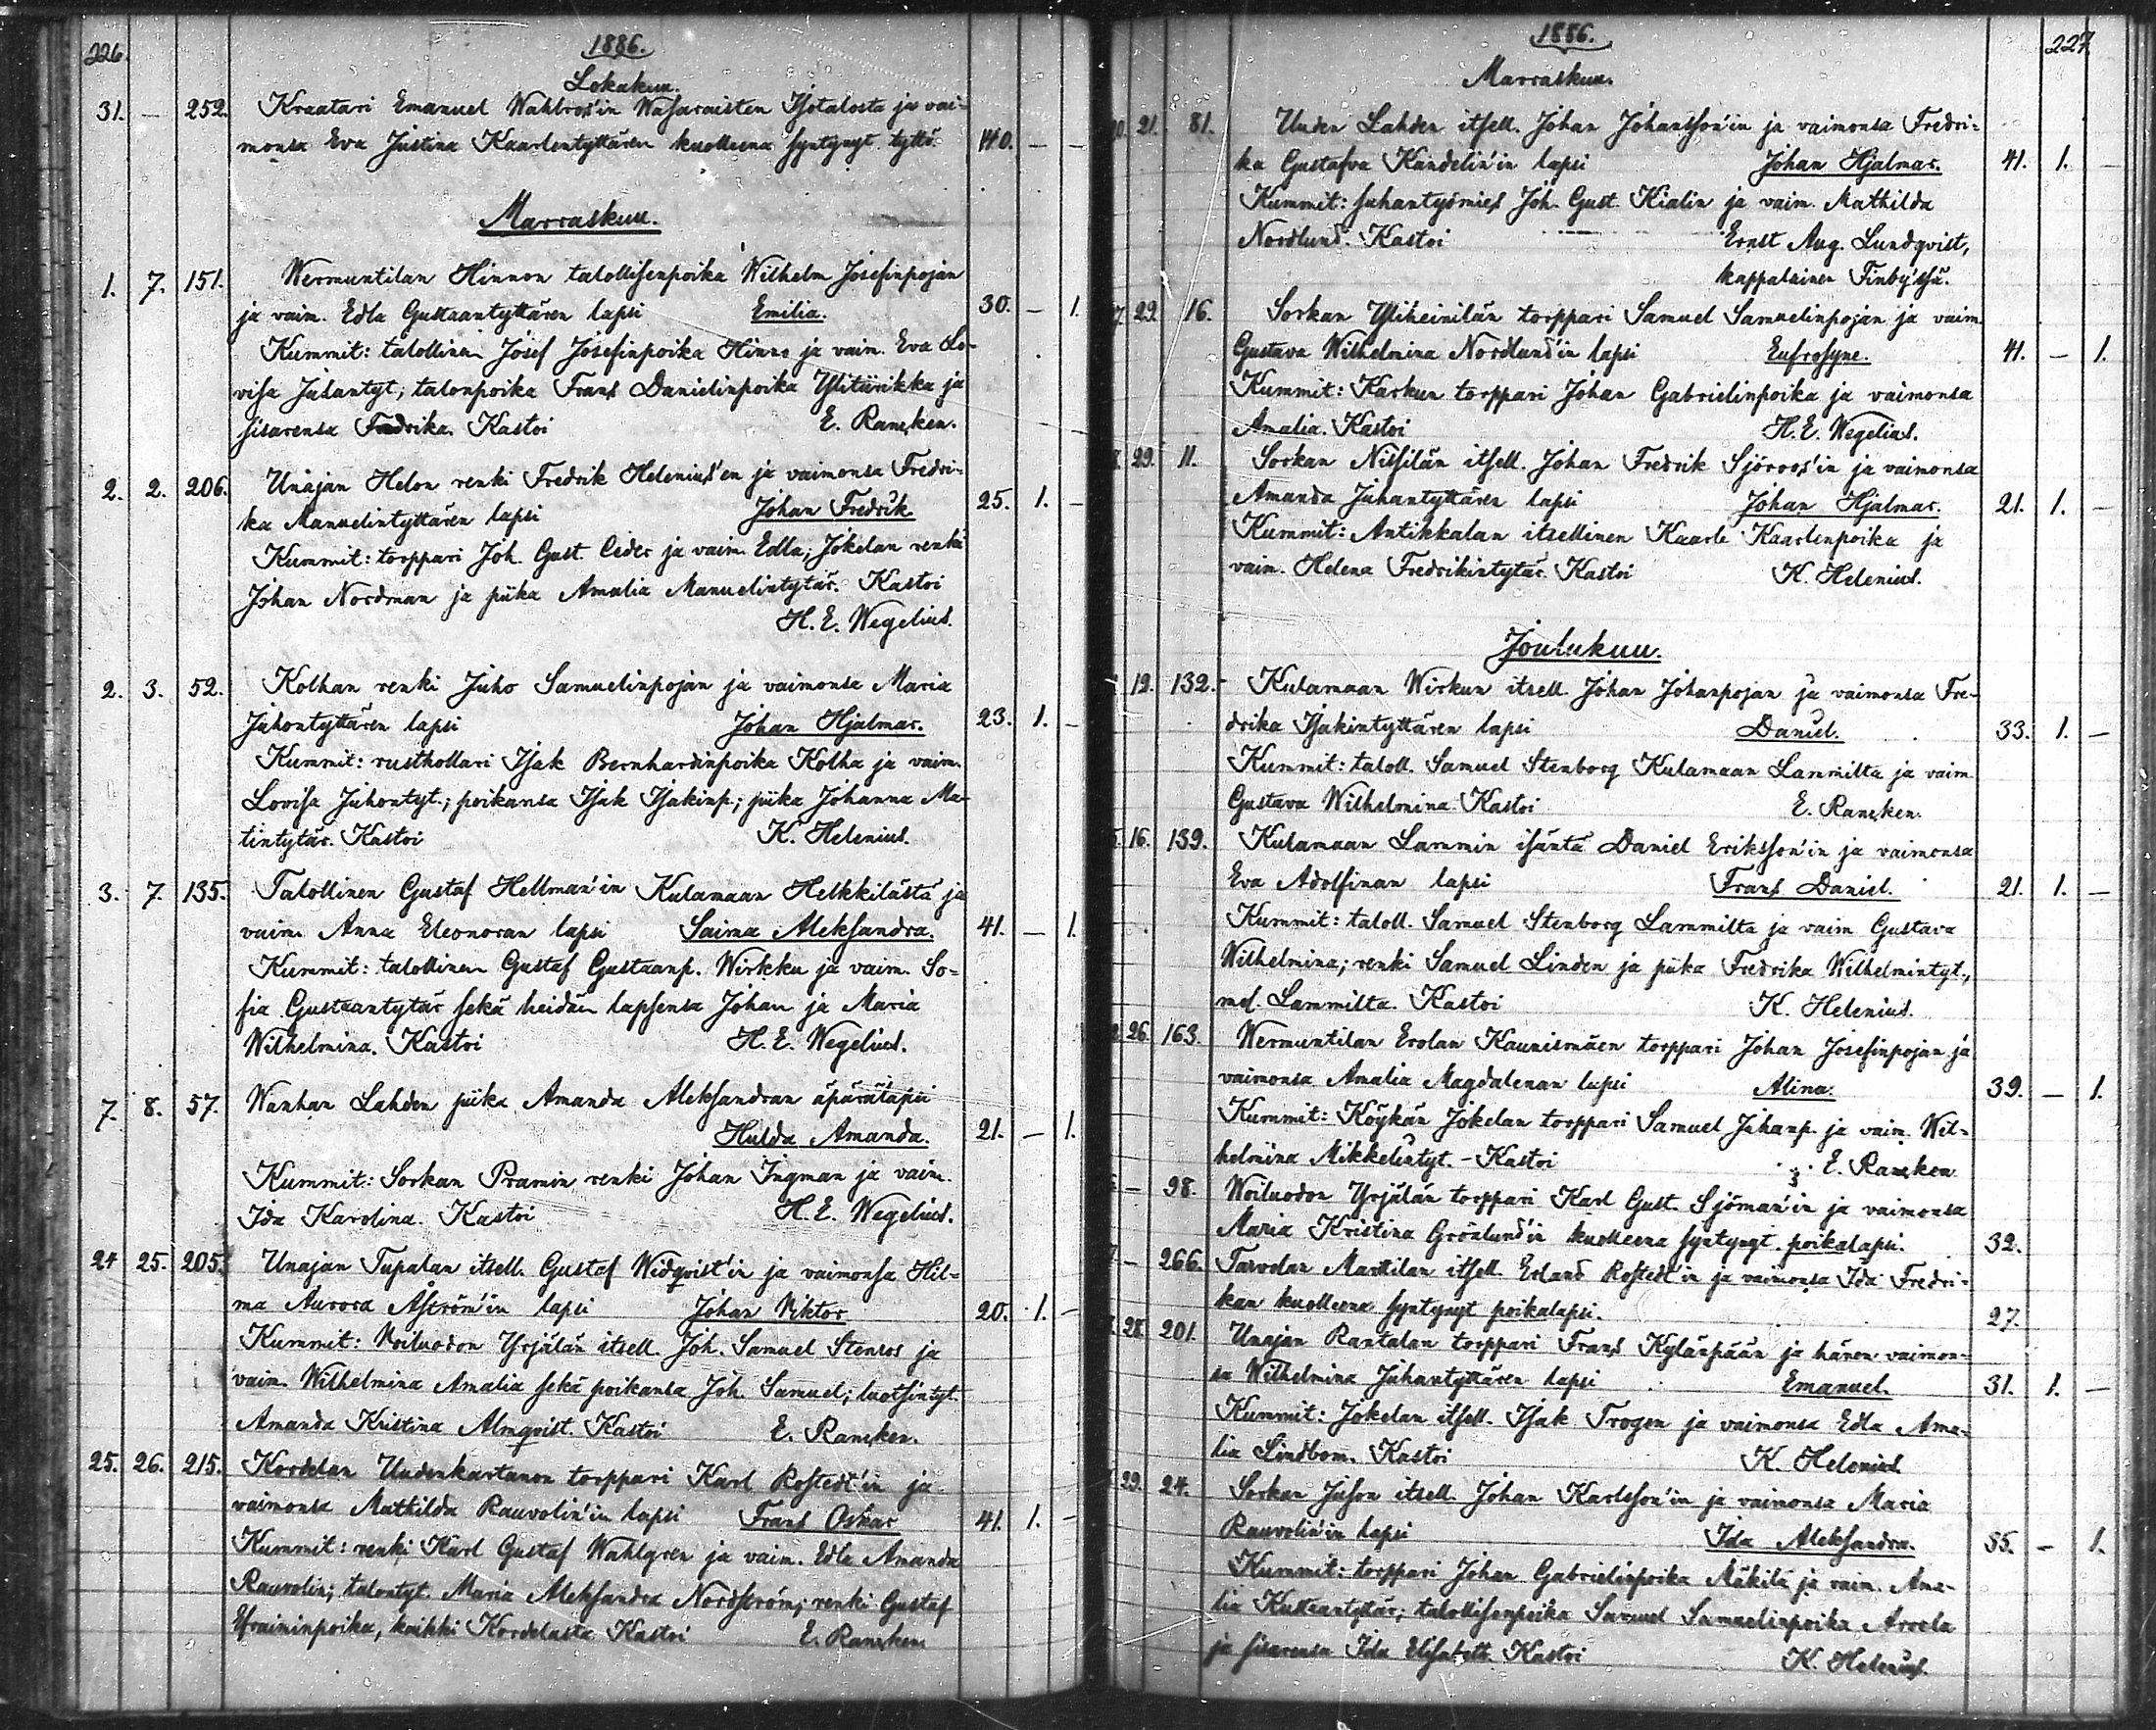 226.
1886.
Lokakuu.
31. — 252. Kraatari Emanuel Wahlros'in Wasaraisten Isotalosta ja vai-
monsa Eva Justina Kaarlentyttären kuolleena syntynyt tyttö. 40. — —
Marraskuu.
1. 7. 151. Wermuntilan Hinnon talollisenpoika Wilhelm Josefinpojan
ja vaim. Edla Gustaantyttären lapsi Emilia. 30. — 1.
Kummit: talollinen Josef Josefinpoika Hinno ja vaim. Eva Lo-
visa Juhantyt.; talonpoika Frans Danielinpoika Ylitiirikka ja
sisarensa Fredrika. Kastoi E. Rancken.
2. 2. 206. Unajan Helon renki Fredrik Helenius'en ja vaimonsa Fredri-
ka Manuelintyttären lapsi Johan Fredrik 25. 1. —
Kummit: torppari Joh. Gust. Ceder ja vaim. Edla; Jokelan renki
Johan Nordman ja piika Amalia Manuelintytär. Kastoi
H. E. Wegelius.
2. 3. 52. Kolhan renki Juho Samuelinpojan ja vaimonsa Maria
Juhontyttären lapsi Johan Hjalmar. 23. 1. —
Kummit: rusthollari Isak Bernhardinpoika Kolha ja vaim.
Lovisa Juhontyt.; poikansa Isak Isakinp.; piika Johanna Ma-
tintytär. Kastoi K. Helenius.
3. 7. 135. Talollinen Gustaf Hellman'in Kulamaan Helkkilästä ja
vaim. Anna Eleonoran lapsi Saima Aleksandra. 41. — 1.
Kummit: talollinen Gustaf Gustaanp. Wirkku ja vaim. So-
fia Gustaantytär sekä heidän lapsensa Johan ja Maria
Wilhelmina. Kastoi H. E. Wegelius.
7. 8. 57. Wanhan Lahden piika Amanda Aleksandran äpärälapsi
Hulda Amanda. 21. — 1.
Kummit: Sorkan Pramin renki Johan Ingman ja vaim.
Ida Karolina. Kastoi H. E. Wegelius.
24 25. 205. Unajan Tupalan itsell. Gustaf Widqvist'in ja vaimonsa Hil-
ma Aurora Åström'in lapsi Johan Viktor 20. 1. —
Kummit: Voiluodon Yrjälän itsell. Joh. Samuel Stenros ja
vaim. Wilhelmina Amalia sekä poikansa Joh. Samuel; luotsintyt.
Amanda Kristina Almqvist. Kastoi E. Rancken.
25. 26. 215. Kordelan Uudenkartanon torppari Karl Rostedt'in ja
vaimonsa Mathilda Rauvolin'in lapsi Frans Oskar 41. 1. —
Kummit: renki Karl Gustaf Wahlgren ja vaim. Edla Amanda
Rauvolin; talontyt. Maria Aleksandra Nordström; renki Gustaf
Efraiminpoika, kaikki Kordelasta. Kastoi E. Rancken
1886.
227
Marraskuu.
21. 81. Uuden Lahden itsell. Johan Johansson'in ja vaimonsa Fredri-
ka Gustafva Kandelin'in lapsi Johan Hjalmar. 41. 1. —
Kummit: sahantyömies Joh. Gust. Kialin ja vaim. Mathilda
Nordlund. Kastoi Ernst Aug. Lundqvist,
kappalainen Finby'ssä.
29. 16. Sorkan Yliheinilän torppari Samuel Samuelinpojan ja vaim.
Gustava Wilhelmina Nordlund'in lapsi Eufrosyne. 41. — 1.
Kummit: Karkun torppari Johan Gabrielinpoika ja vaimonsa
Amalia. Kastoi H. E. Wegelius.
29. 11. Sorkan Niisilän itsell. Johan Fredrik Sjöroos'in ja vaimonsa
Amanda Juhantyttären lapsi Johan Hjalmar. 21. 1. —
Kummit: Antikkalan itsellinen Kaarle Kaarlenpoika ja
vaim. Helena Fredrikintytär. Kastoi K. Helenius.
Joulukuu.
12. 132. Kulamaan Wirkun itsell. Johan Johanpojan ja vaimonsa Fre-
drika Isakintyttären lapsi Daniel. 33. 1. —
Kummit: taloll. Samuel Stenborg Kulamaan Lammilta ja vaim.
Gustava Wilhelmina. Kastoi E. Rancken.
16. 139. Kulamaan Lammin isäntä Daniel Eriksson'in ja vaimonsa
Eva Adolfinan lapsi Frans Daniel. 21. 1. —
Kummit: taloll. Samuel Stenborg Lammilta ja vaim. Gustava
Wilhelmina; renki Samuel Linden ja piika Fredrika Wilhelmintyt.,
mol. Lammilta. Kastoi K. Helenius.
26. 163. Wermuntilan Erolan Kaunismäen torppari Johan Josefinpojan ja
vaimonsa Amalia Magdalenan lapsi Alina. 39. — 1.
Kummit: Köykän Jokelan torppari Samuel Juhanp. ja vaim. Wil-
helmina Mikkelintyt. - Kastoi E. Rancken
— 98. Woiluodon Yrjälän torppari Karl Gust. Sjöman'in ja vaimonsa
Maria Kristina Grönlund'in kuolleena syntynyt poikalapsi. 32.
— 266. Tarvolan Marttilan itsell. Erland Rostedt'in ja vaimonsa Ida Fredri-
kan kuolleena syntynyt poikalapsi. 27.
28. 201. Unajan Rantalan torppari Frans Kylänpään ja hänen vaimon-
sa Wilhelmina Juhantyttären lapsi Emanuel. 31. 1. —
Kummit: Jokelan itsell. Isak Trogen ja vaimonsa Edla Ama-
lia Lindbom. Kastoi K. Helenius.
29. 24. Sorkan Juson itsell. Johan Karlsson'in ja vaimonsa Maria
Rauvolin'in lapsi Ida Aleksandra. 35. — 1.
Kummit: torppari Johan Gabrielinpoika Mäkilä ja vaim. Ama-
lia Kustaantytär; talollisenpoika Samuel Samuelinpoika Arvela
ja sisarensa Ida Elisabeth. Kastoi K. Helenius.